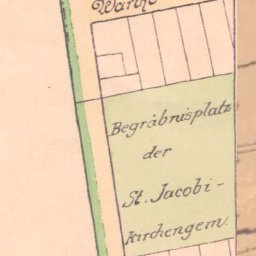 Begräbnisplatz
der
St. Jacobi-
kirchengem.